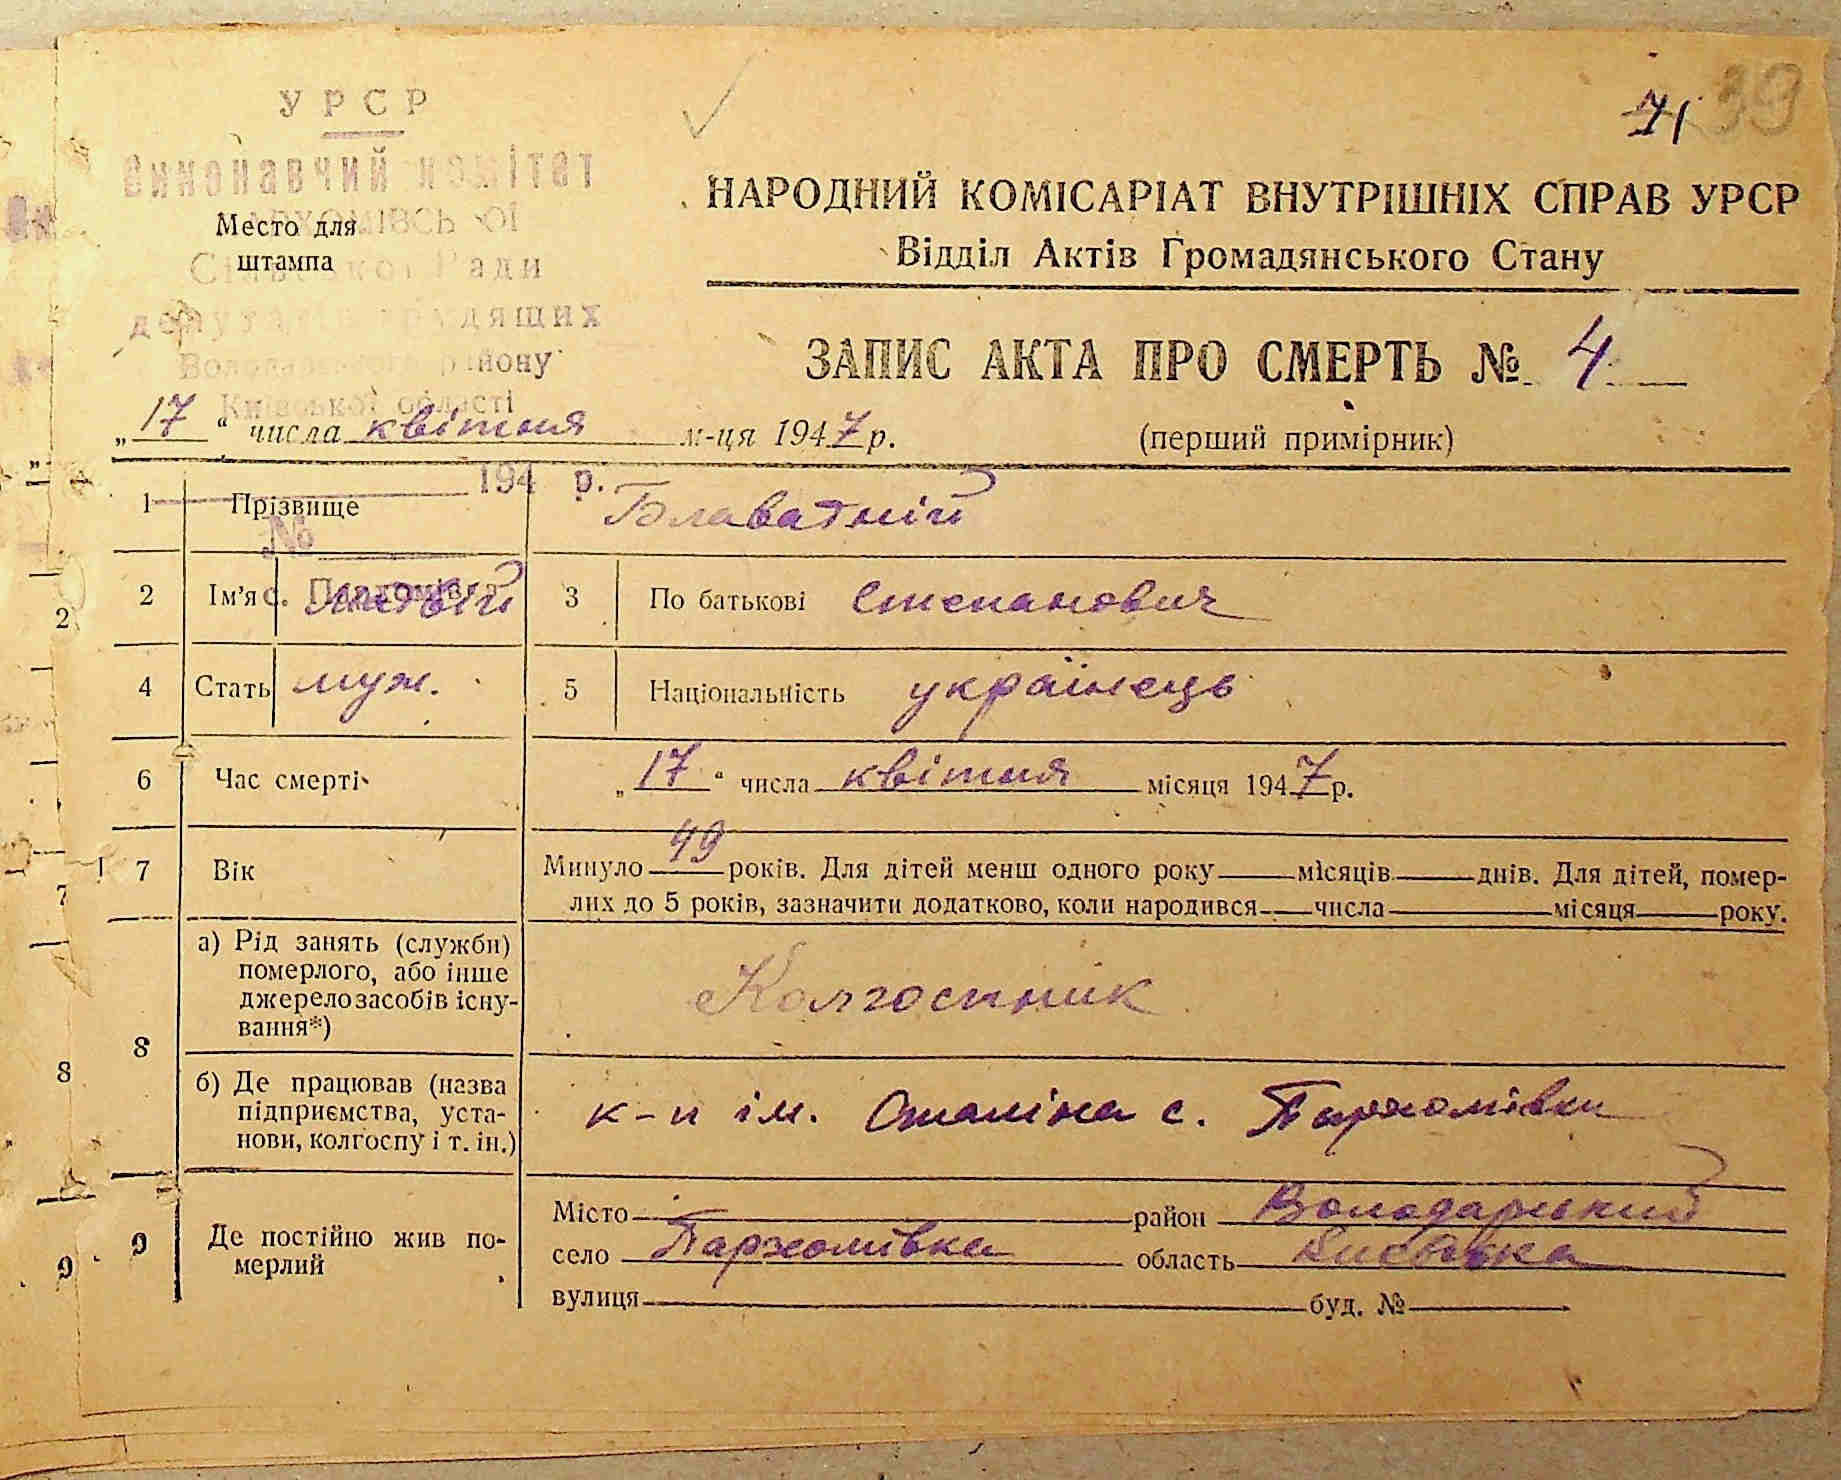 71 39
УРСР
Виконавчий комітет
Місто для
штампа
Сільської Ради
депутатів трудящих
Володарського району
Київської області
194 р.
№
НАРОДНИЙ КОМІСАРІАТ ВНУТРІШНІХ СПРАВ УРСР
Відділ Актів Громадянського Стану
ЗАПИС АКТА ПРО СМЕРТЬ № 4
„17“ числа квітня м-ця 1947 р.
(перший примірник)
1 Прізвище Блаватний
2 Ім'я Матвій 3 По батькові Степанович
4 Стать муж. 5 Національність українець
6 Час смерті „17“ числа квітня місяця 1947 р.
7 Вік Минуло 49 років. Для дітей менш одного року місяців днів. Для дітей, помер-
лих до 5 років, зазначити додатково, коли народився числа місяця року.
8 а) Рід занять (служби)
померлого, або інше
джерело засобів існу-
вання*)
Колгоспник
б) Де працював (назва
підприємства, уста-
нови, колгоспу і т. ін.)
к-п ім. Сталіна с. Пархомівки
9 Де постійно жив по-
мерлий
Місто район Володарський
село Пархомівка область Київська
вулиця буд. №
2
7
8
9